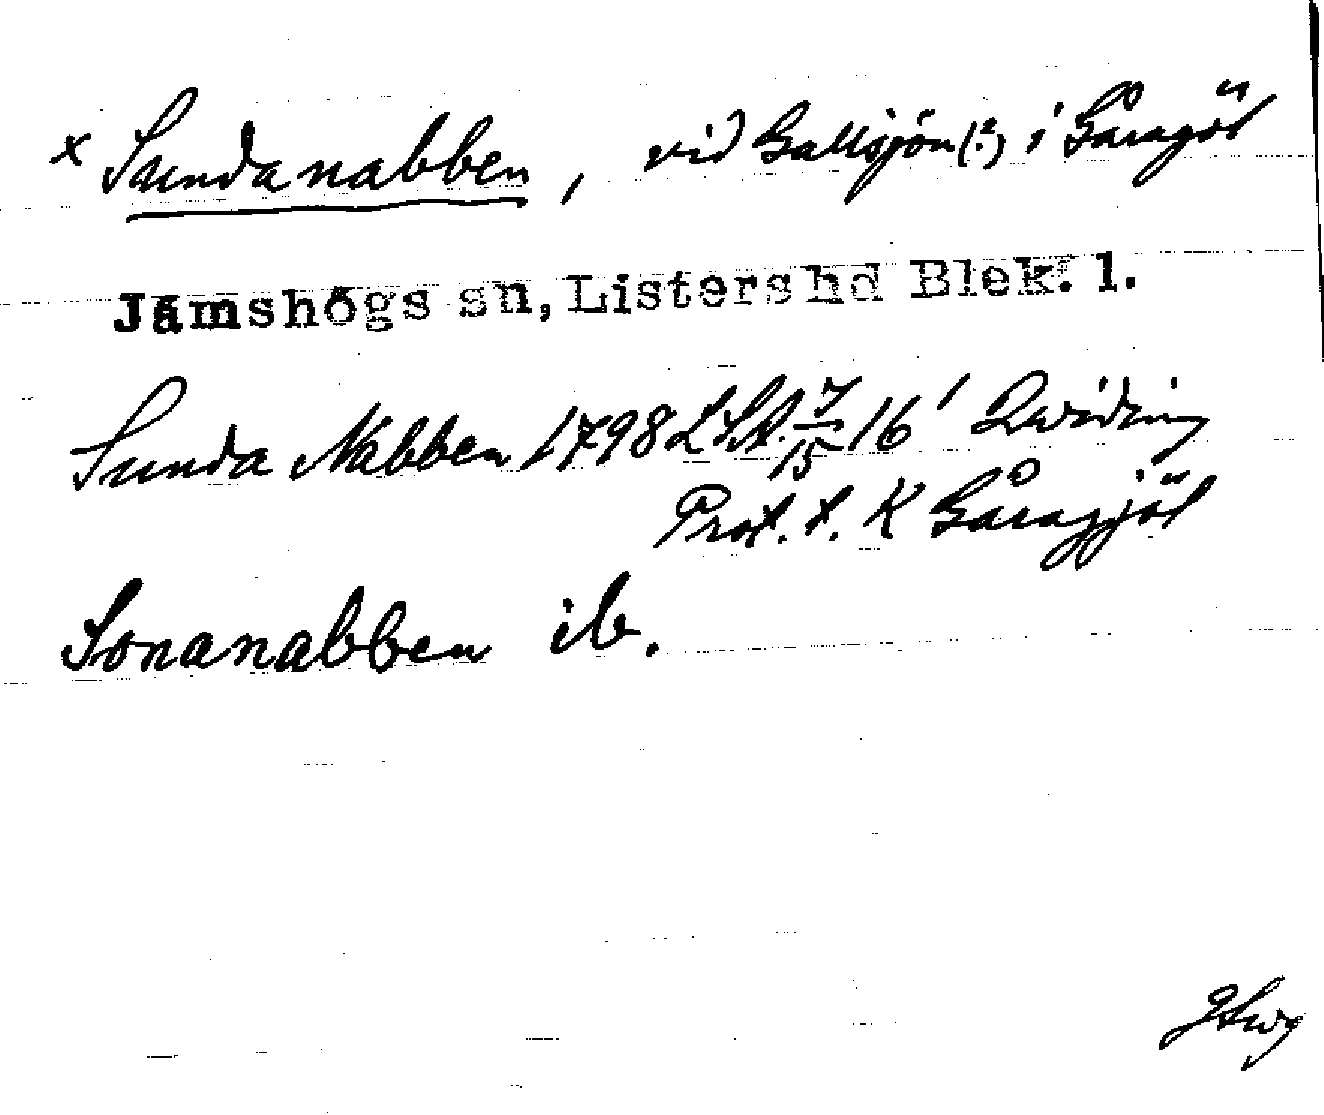 x Sundanabben, vid Gallsjön (?) i Gåragöl
Jämshögs sn, Listers hd Blek. l.
Sunda Nabben 1798 LSA. 7/15 16'
Prot. t. K Gåragjöl
Sonanabben ib.